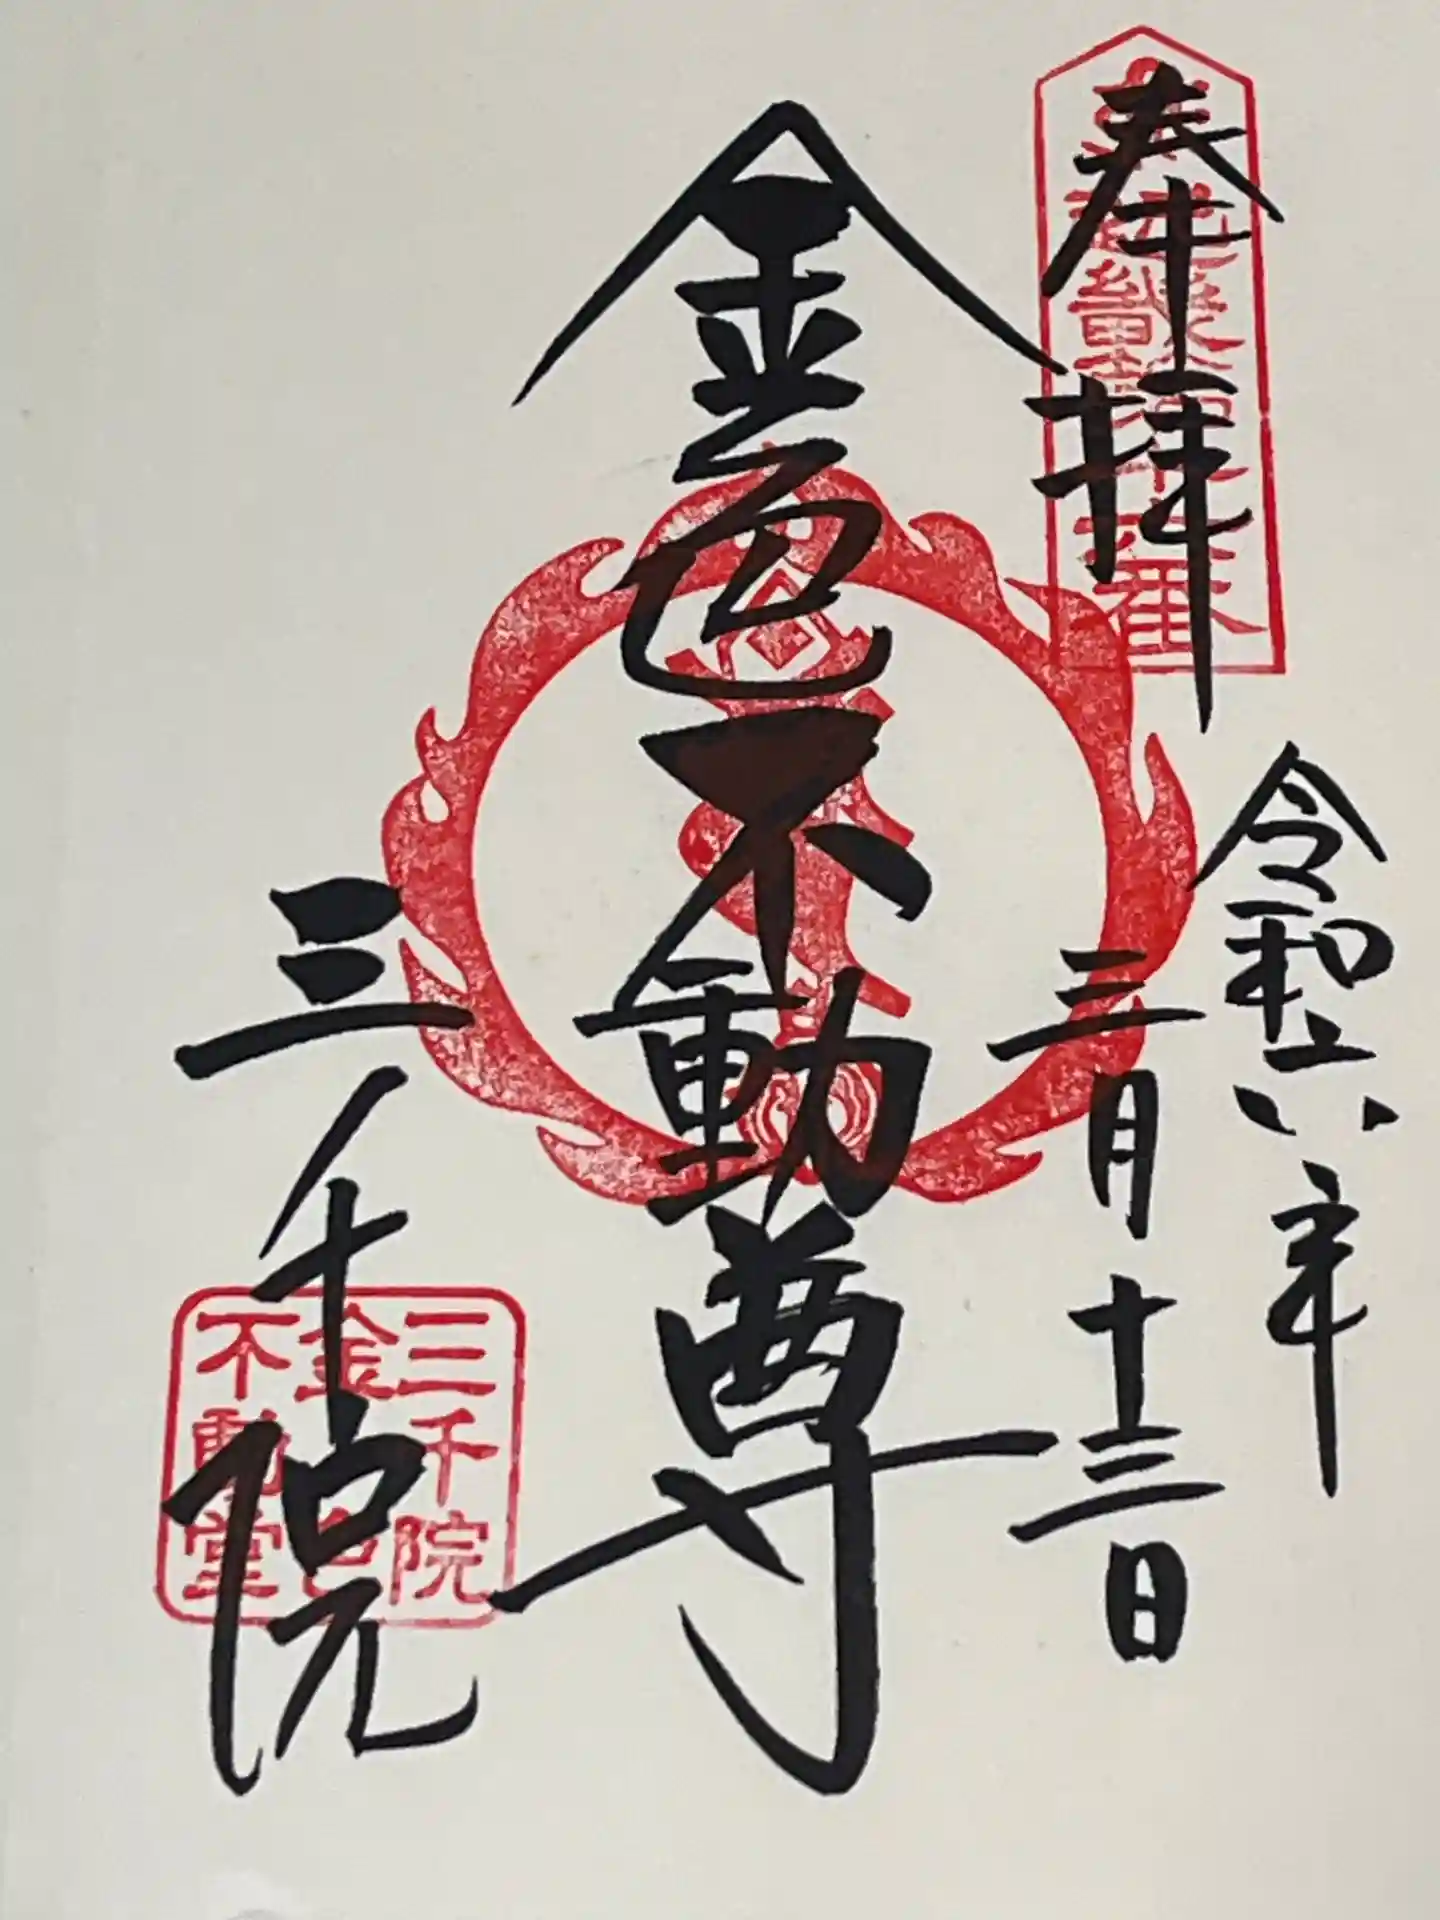 奉拝
令和六年
三月十三日
金色不動尊
三千院
三千院
金色
不動堂